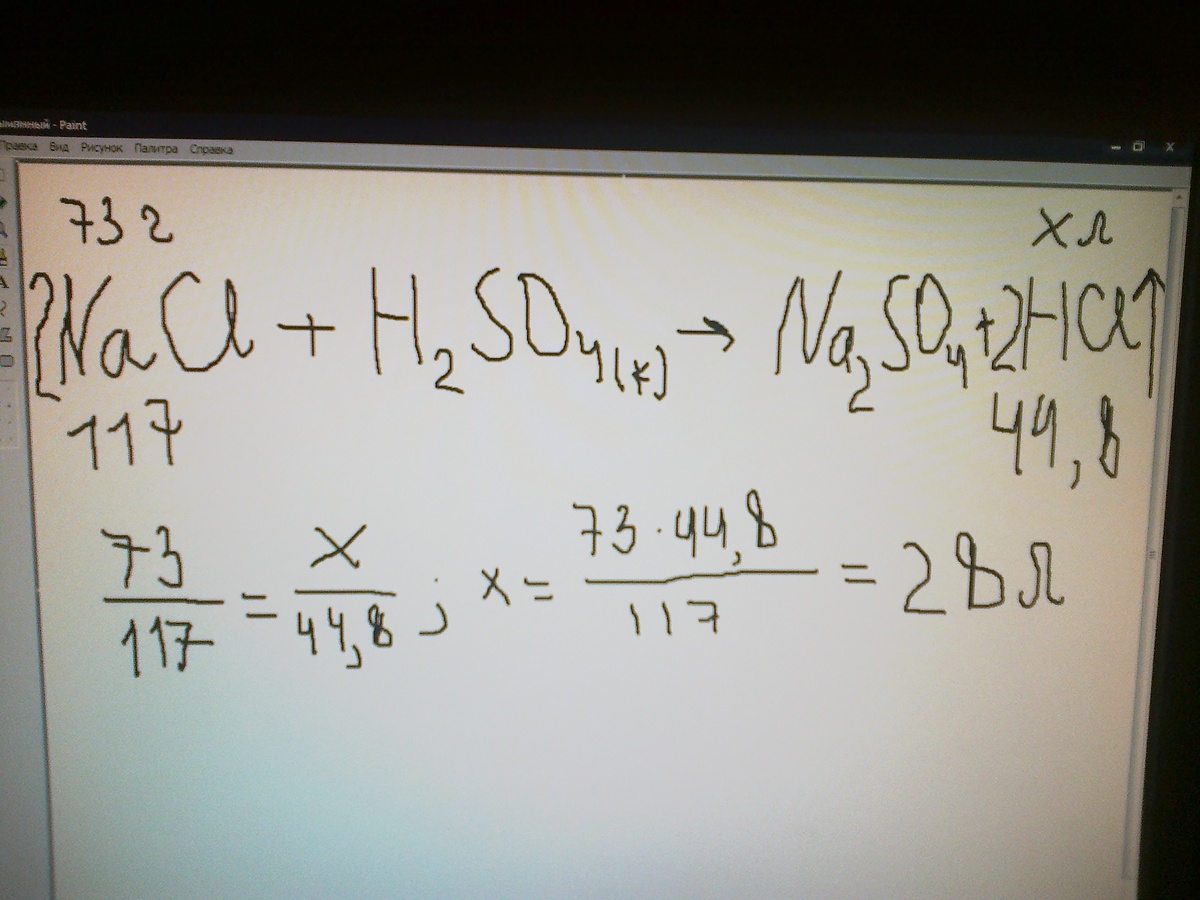 ыманный - Paint
Правка Вид Рисунок Палитра Справка
73 г х л
2NaCl + H₂SO₄(к) → Na₂SO₄ + 2HCl↑
117 44,8
73/117 = x/44,8 ; x = 73·44,8/117 = 28л